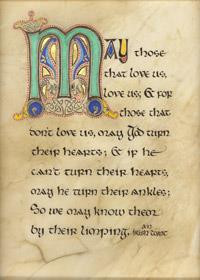 May those
that love us,
love us; & for
those that
don't love us, may God turn
their hearts; & if he
can't turn their hearts,
may he turn their ankles;
So we may know them
by their limping. an
Irish Toast